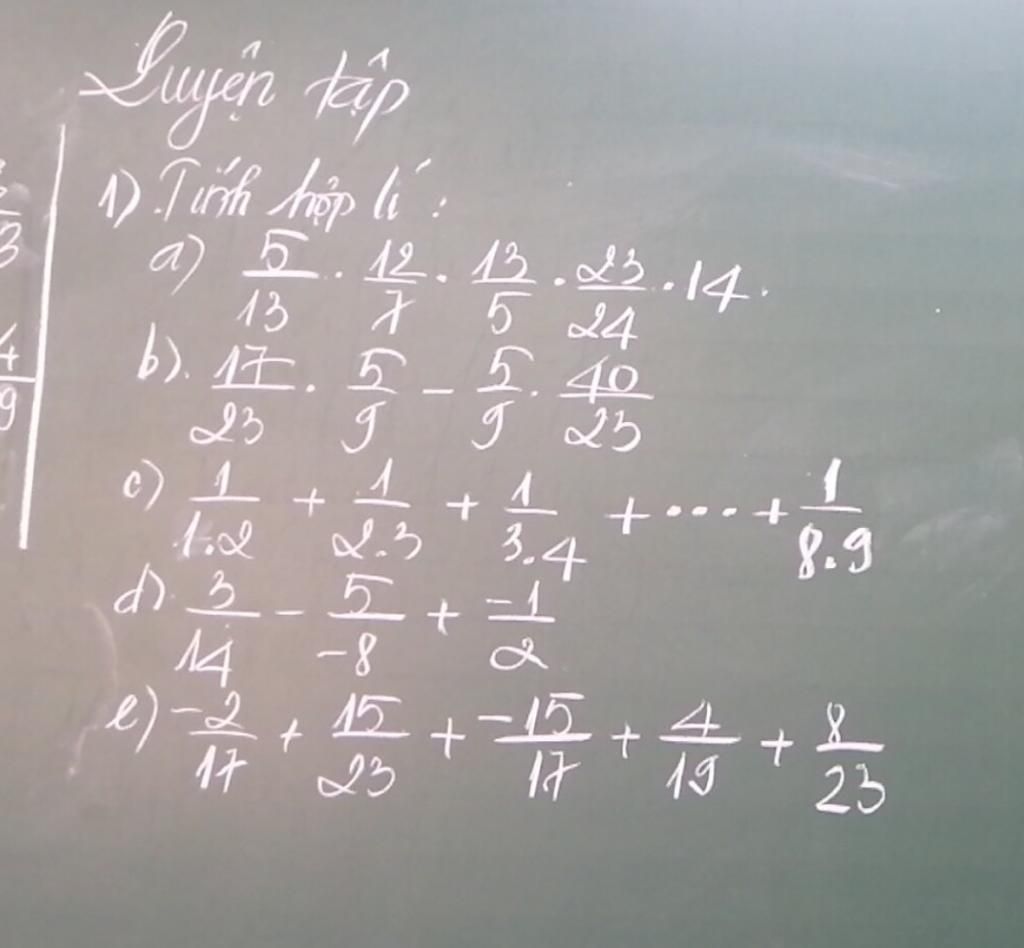 Luyện tập
1). Tính hợp lí:
a) 5/13 . 12/7 . 13/5 . 23/24 . 14.
b). 17/23 . 5/9 - 5/9 . 40/23
c) 1/1.2 + 1/2.3 + 1/3.4 + ... + 1/8.9
d) 3/14 - 5/-8 + -1/2
e) -2/17 + 15/23 + -15/17 + 4/19 + 8/23